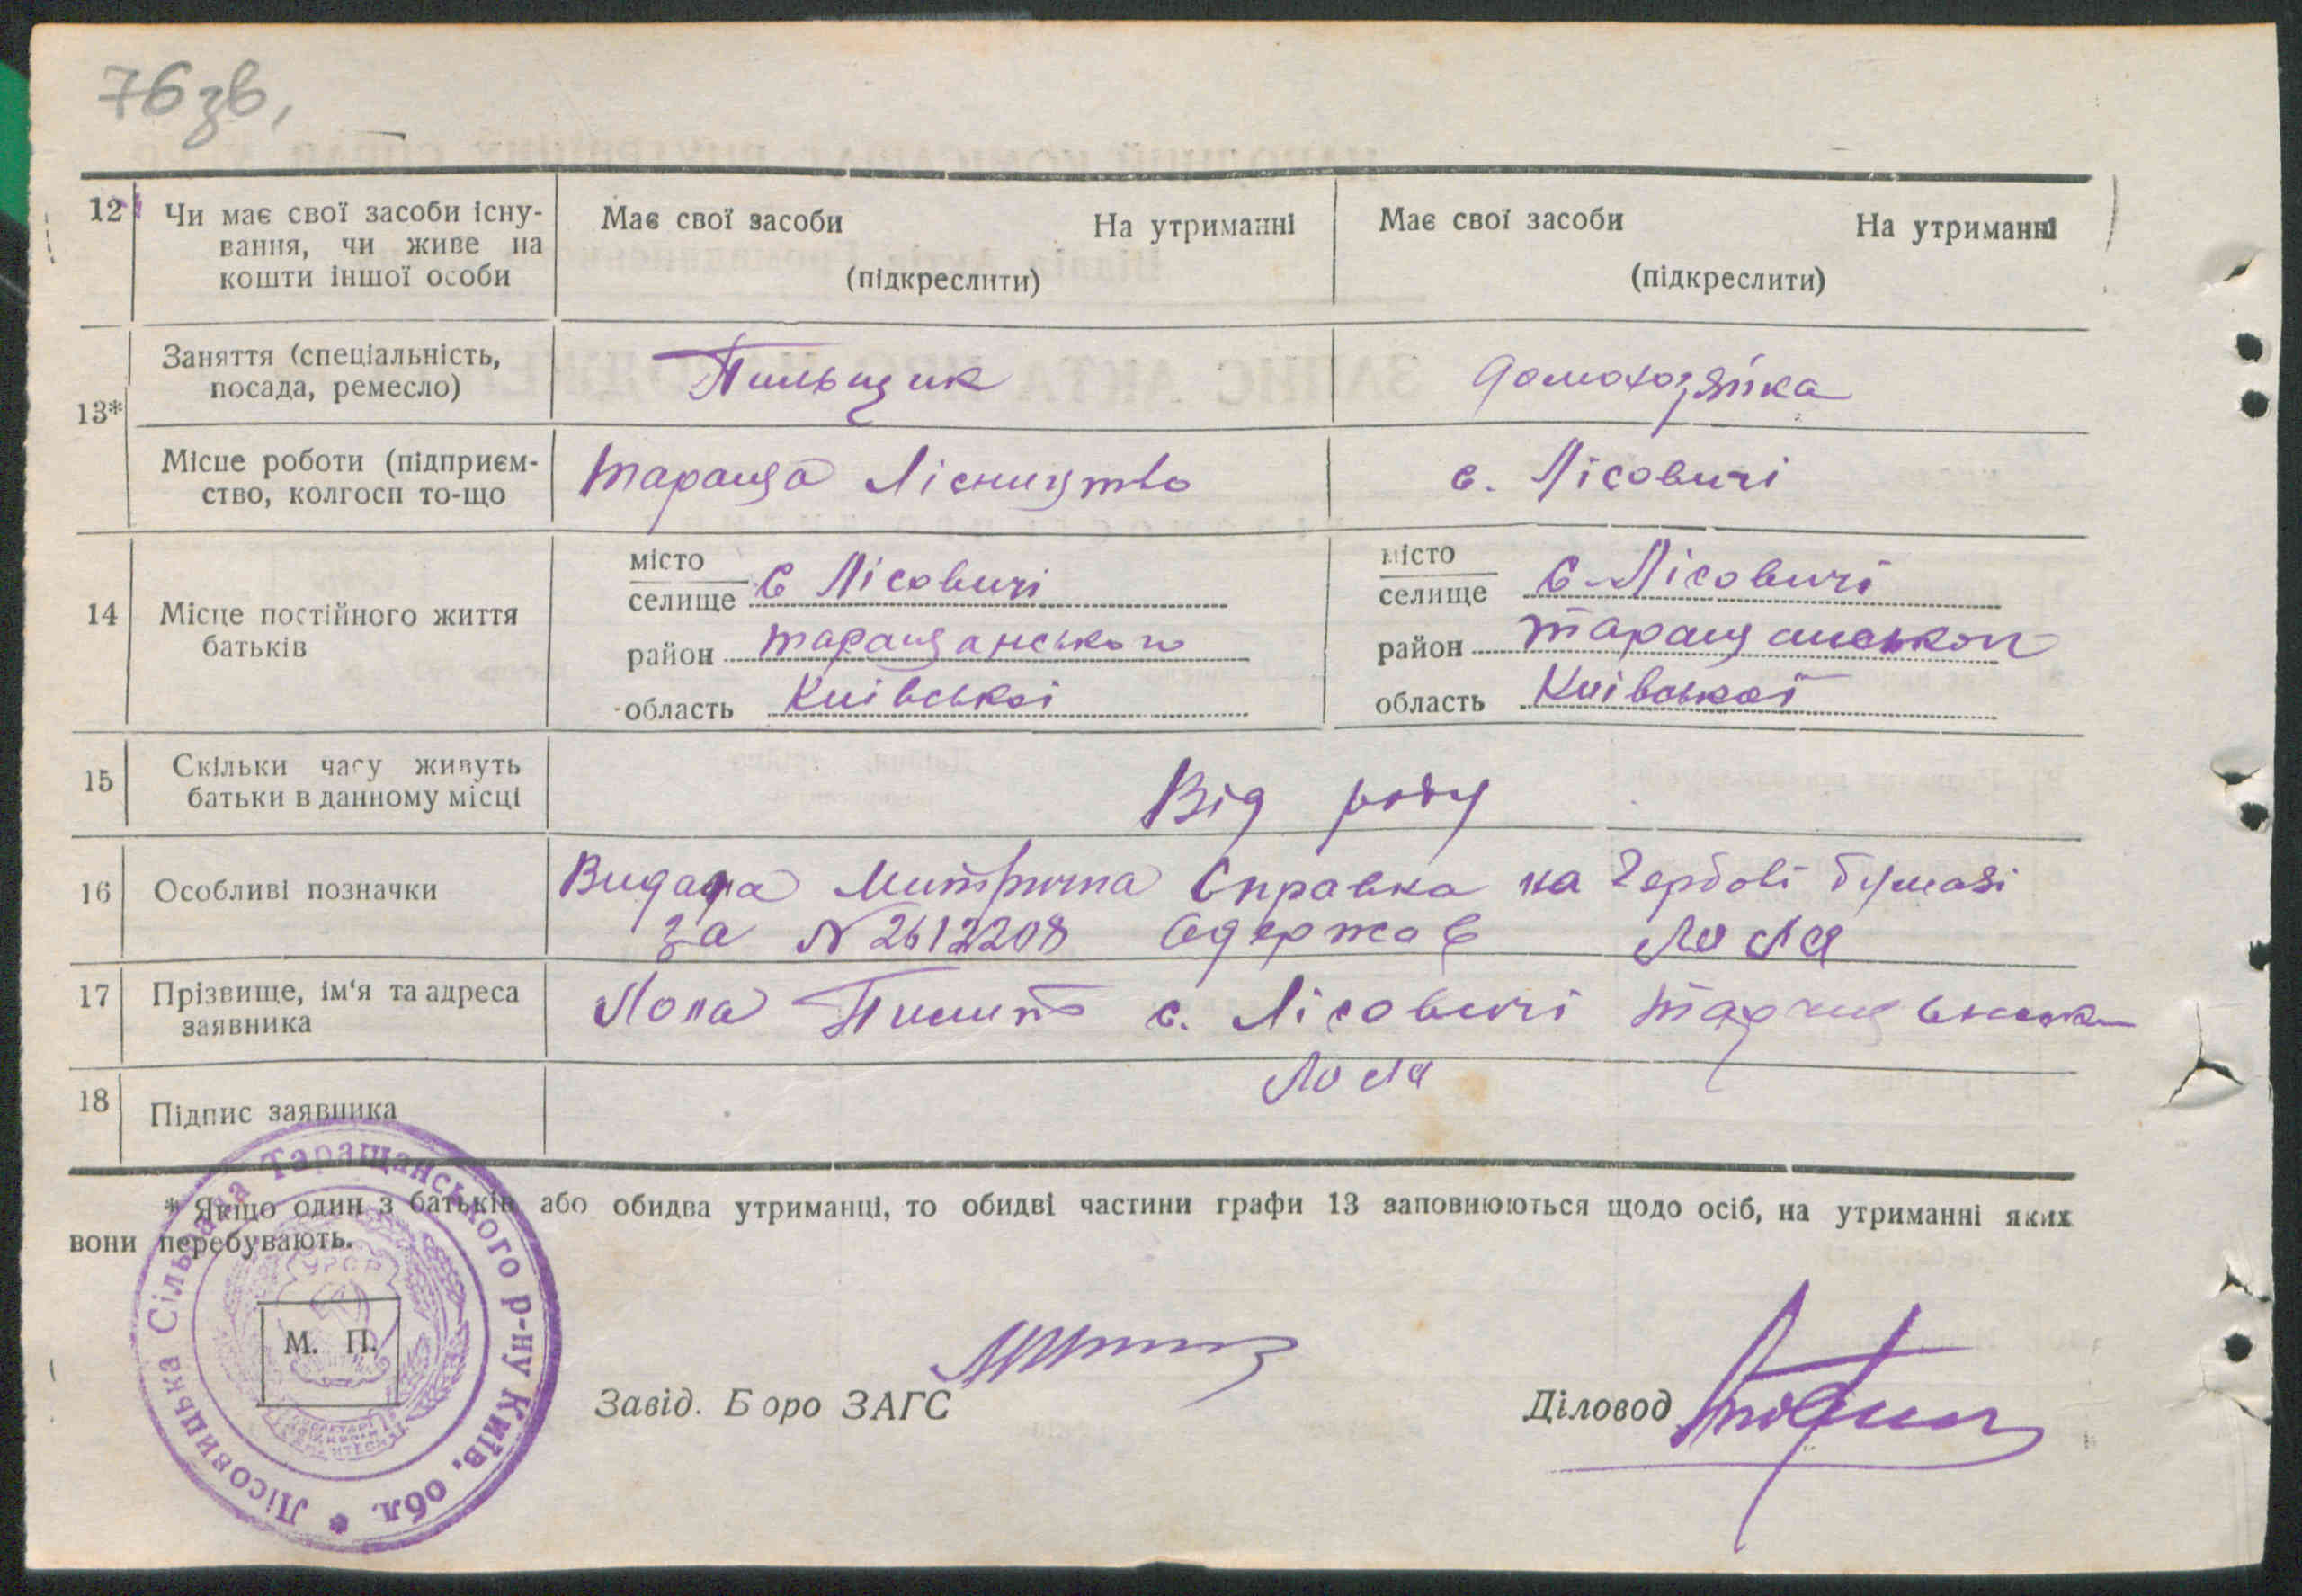 76 зв,
12 Чи має свої засоби існу-
вання, чи живе на
кошти іншої особи
Має свої засоби На утриманні
(підкреслити)
Має свої засоби На утриманні
(підкреслити)
13*
Заняття (спеціальність,
посада, ремесло)
Пильщик
домохозяйка
Місце роботи (підприєм-
ство, колгосп то-що
Тараща Лісництво
с. Лісовичі
14 Місце постійного життя
батьків
місто
селище с Лісовичі
район таращанського
область Київської
місто
селище с. Лісовичі
район таращанського
область Київської
15 Скільки часу живуть
батьки в данному місці
Від роду
16 Особливі позначки
Видана Митрична Справка на Гербові бумазі
за N 2612208 Одержав Лопа
17 Прізвище, ім'я та адреса
заявника
Лопа Пилип с. Лісовичі
18 Підпис заявника
Лопа
* Якщо один з батьків або обидва утриманці, то обидві частини графи 13 заповнюються щодо осіб, на утриманні яких
вони перебувають.
Лісовицька Сільрада Таращанського р-ну Київ. обл. *
УРСР
М. П.
Завід. Бюро ЗАГС
Діловод